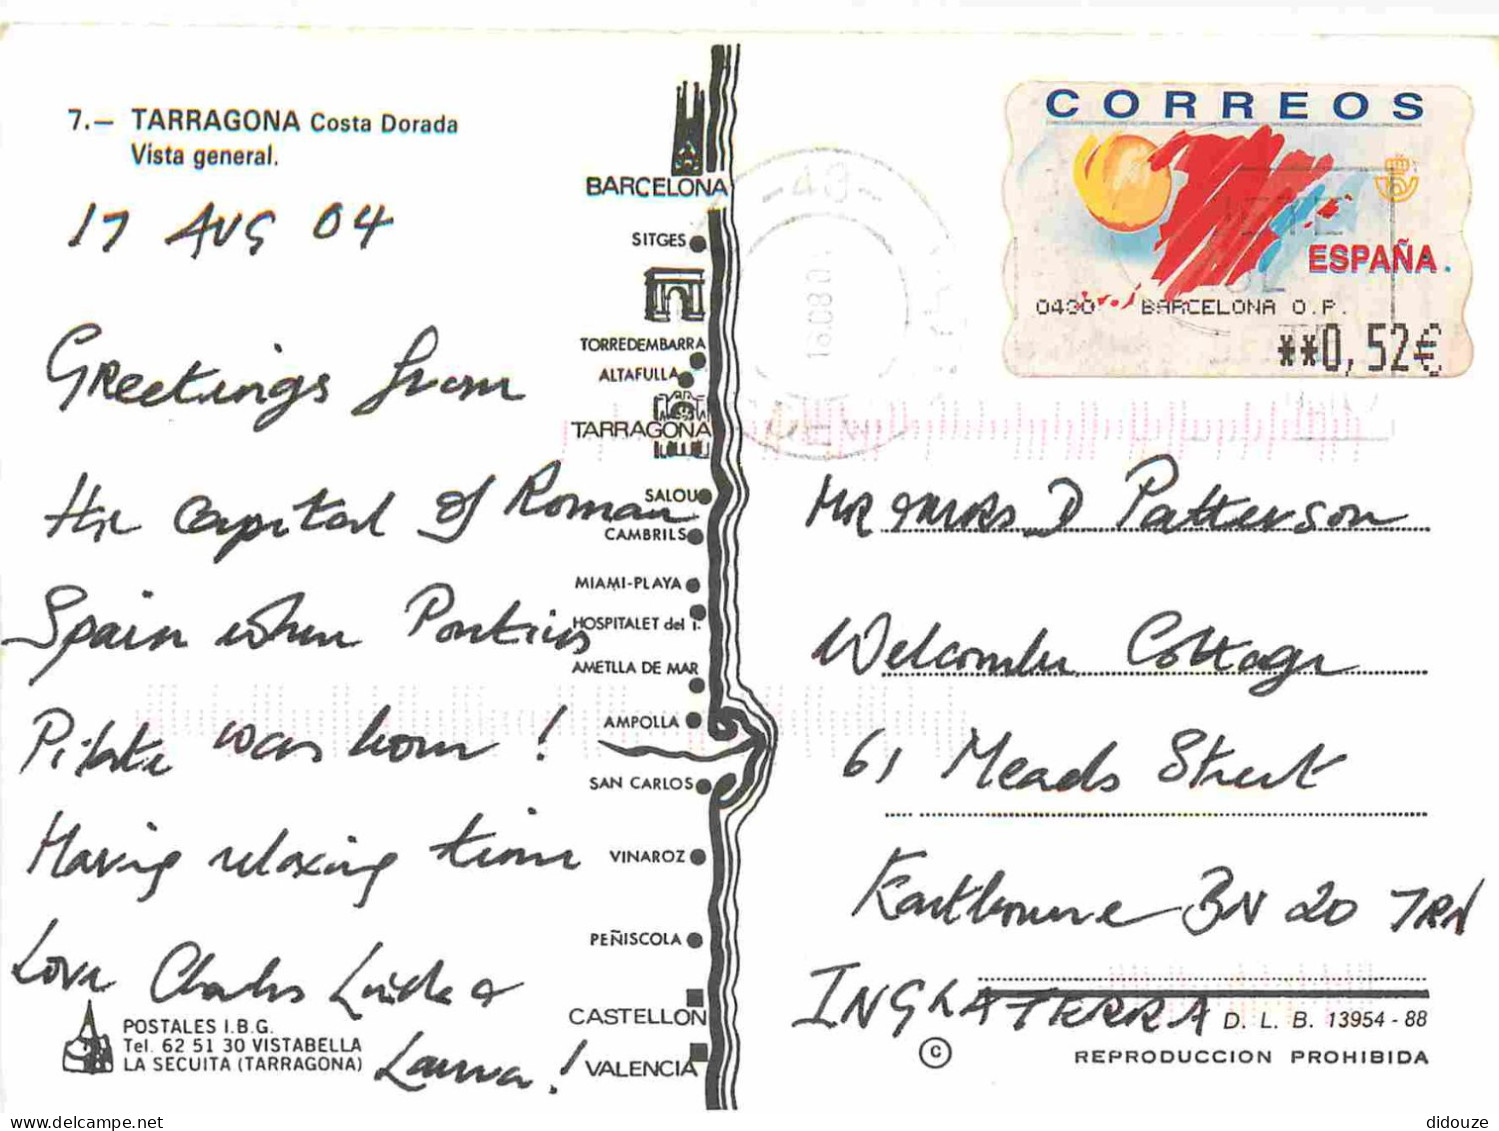 7.— TARRAGONA Costa Dorada
Vista general.
17 AUG 04
Greetings from
the capital of Roman
Spain when Pontius
Pilate was born!
Having relaxing time
Love Charles Linda &
Laura!
POSTALES I.B.G.
Tel. 62 51 30 VISTABELLA
LA SECUITA (TARRAGONA)
BARCELONA
SITGES
TORREDEMBARRA
ALTAFULLA
TARRAGONA
SALOU
CAMBRILS
MIAMI-PLAYA
HOSPITALET del I.
AMETLLA DE MAR
AMPOLLA
SAN CARLOS
VINAROZ
PEÑISCOLA
CASTELLON
VALENCIA
CORREOS
ESPAÑA
0400 BARCELONA O.P.
**0,52€
-48-
MR & MRS D Patterson
Welcombe Cottage
61 Meads Street
Eastbourne BN 20 7RN
INGLATERRA
D. L. B. 13954 - 88
© REPRODUCCION PROHIBIDA
didouze